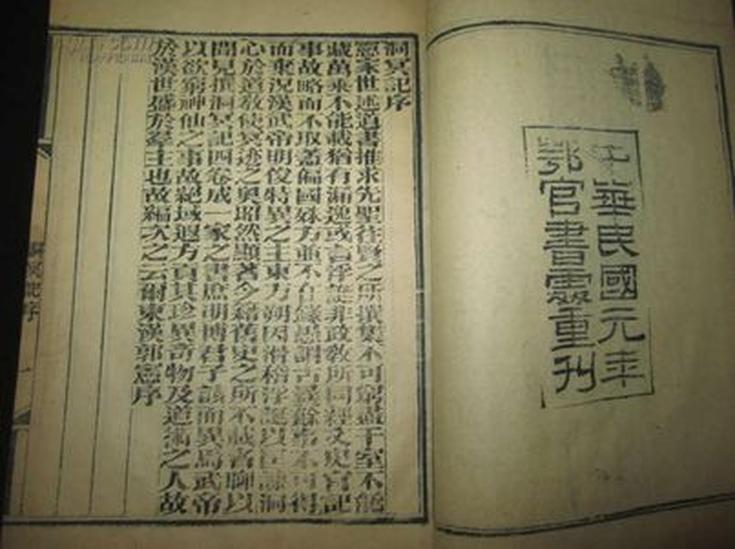 中華民國元年
鄂官書處重刊
洞冥記序
憲家世述道書推求先聖往賢之所撰集不可窮盡千室不能
藏萬乘不能載猶有漏逸或言浮誕非政教所同經文史官記
事故略而不取蓋偏國殊方並不在錄愚謂古曩餘事不可得
而棄況漢武帝明俊特異之主東方朔因滑稽浮誕以匡諫洞
心於道教使冥迹之奧昭然顯著今籍舊史之所不載者聊以
聞見撰洞冥記四卷成一家之書庶明博君子該而異焉武帝
以欲窮神仙之事故絕域遐方貢其珍異奇物及道術之人故
於漢世盛於羣主也故編次之云爾東漢郭憲序
洞冥記序